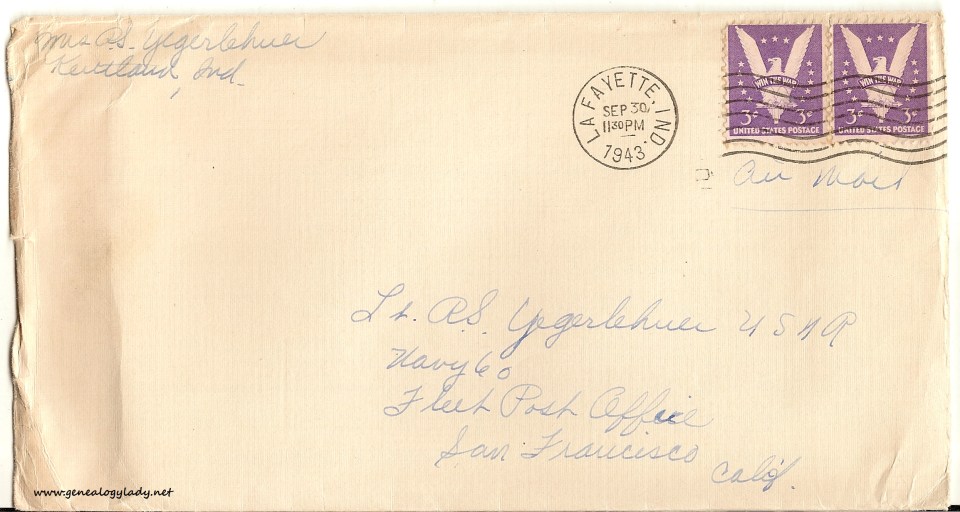 Mrs R.S. Yegerlehner
Kentland, Ind.
LAFAYETTE, IND.
SEP 30
11 30 PM
1943
WIN THE WAR
3¢ 3¢
UNITED STATES POSTAGE
WIN THE WAR
3¢ 3¢
UNITED STATES POSTAGE
Air Mail
Lt. R.S. Yegerlehner USNR
Navy 60
Fleet Post Office
San Francisco
Calif.
www.genealogylady.net